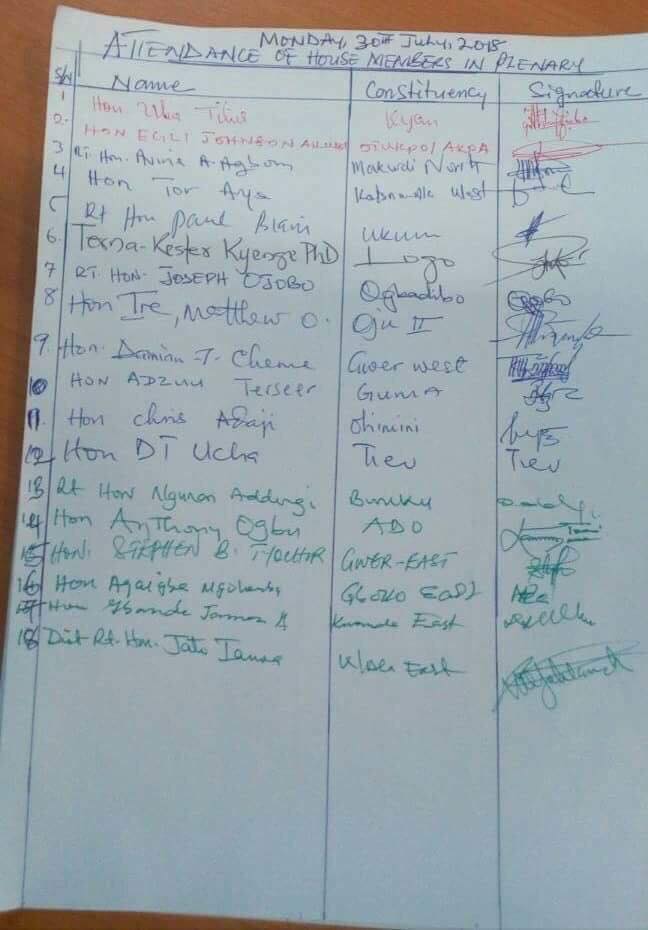 MONDAY, 30TH JULY, 2018
ATTENDANCE OF HOUSE MEMBERS IN PLENARY
S/N Name Constituency Signature
1 Hon. Uba Titus Kyan
2. HON EGILI JOHNSON OTUKPO/AKPA
3 Rt. Hon. Avine A. Agbom Makurdi North
4 Hon Tor Aya Katsina-Ala West
5 Rt Hon Paul Biam Ukum
6. Terna-Kester Kyenge PhD Logo
7 RT. HON. JOSEPH OJOBO Ogbadibo
8 Hon Ire, Matthew O. Oju II
9. Hon. Damian T. Cheme Gwer west
10 HON ADZUU Terseer GUMA
11. Hon Chris Adaji Ohimini
12 Hon DT Ucha Tiev Tiev
13 Rt Hon Ngunan Addingi Buruku
14 Hon Anthony Ogbu ADO
15 Hon. STEPHEN B. TYOUGHIR GWER-EAST
16 Hon Agaigbe GBOKO EAST
17 Hon Gbande James Kwande East
18 Rt. Hon. East